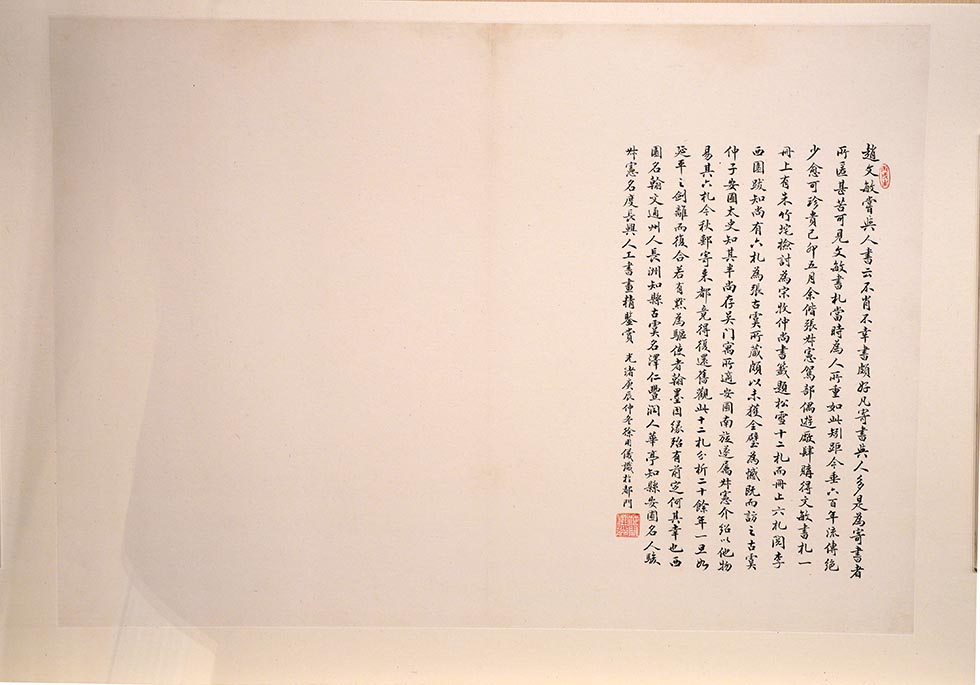 趙文敏嘗與人書云不肖不幸書頗好凡寄書與人多是為寄書者
所匿甚苦可見文敏書札當時為人所重如此矧距今垂六百年流傳絕
少愈可珍貴己卯五月余偕張叔憲駕部偶遊廠肆購得文敏書札一
冊上有朱竹垞檢討為宋牧仲尚書籤題松雪十二札而冊上六札閱李
西園跋知尚有六札為張古虞所藏頗以未獲全璧為憾既而訪之古虞
仲子安圃太史知其半尚存吳門寓所適安圃南旋遂屬叔憲介紹以他物
易其六札今秋郵寄來都竟得復還舊觀此十二札分析二十餘年一旦如
延平之劍離而復合若有默為驅使者翰墨因緣殆有前定何其幸也西
園名翰文通州人長洲知縣古虞名澤仁豐潤人華亭知縣安圃名人駿
叔憲名度長興人工書畫精鑒賞 光緒庚辰仲冬徐用儀識於都門